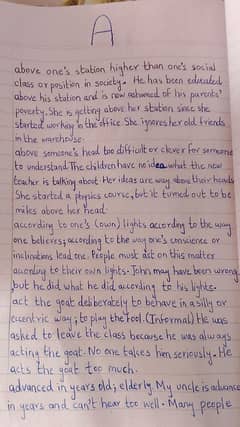 A
above one's station higher than one's social
class or position in society. He has been educated
above his station and is now ashamed of his parents'
poverty. She is getting above her station since she
started working in the office. She ignores her old friends
in the warehouse.
above someone's head too difficult or clever for someone
to understand The children have no idea what the new
teacher is talking about. Her ideas are way above their heads
She started a physics course, but it turned out to be
miles above her head.
according to one's (own) lights according to the way
one believes; according to the way one's conscience or
inclinations lead one. People must act on this matter
according to their own lights. John may have been wrong,
but he did what he did according to his lights.
act the goat deliberately to behave in a silly or
eccentric way; to play the fool. (Informal) He was
asked to leave the class because he was always
acting the goat. No one takes him seriously. He
acts the goat too much.
advanced in years old; elderly My uncle is advance
in years and can't hear too well. Many people